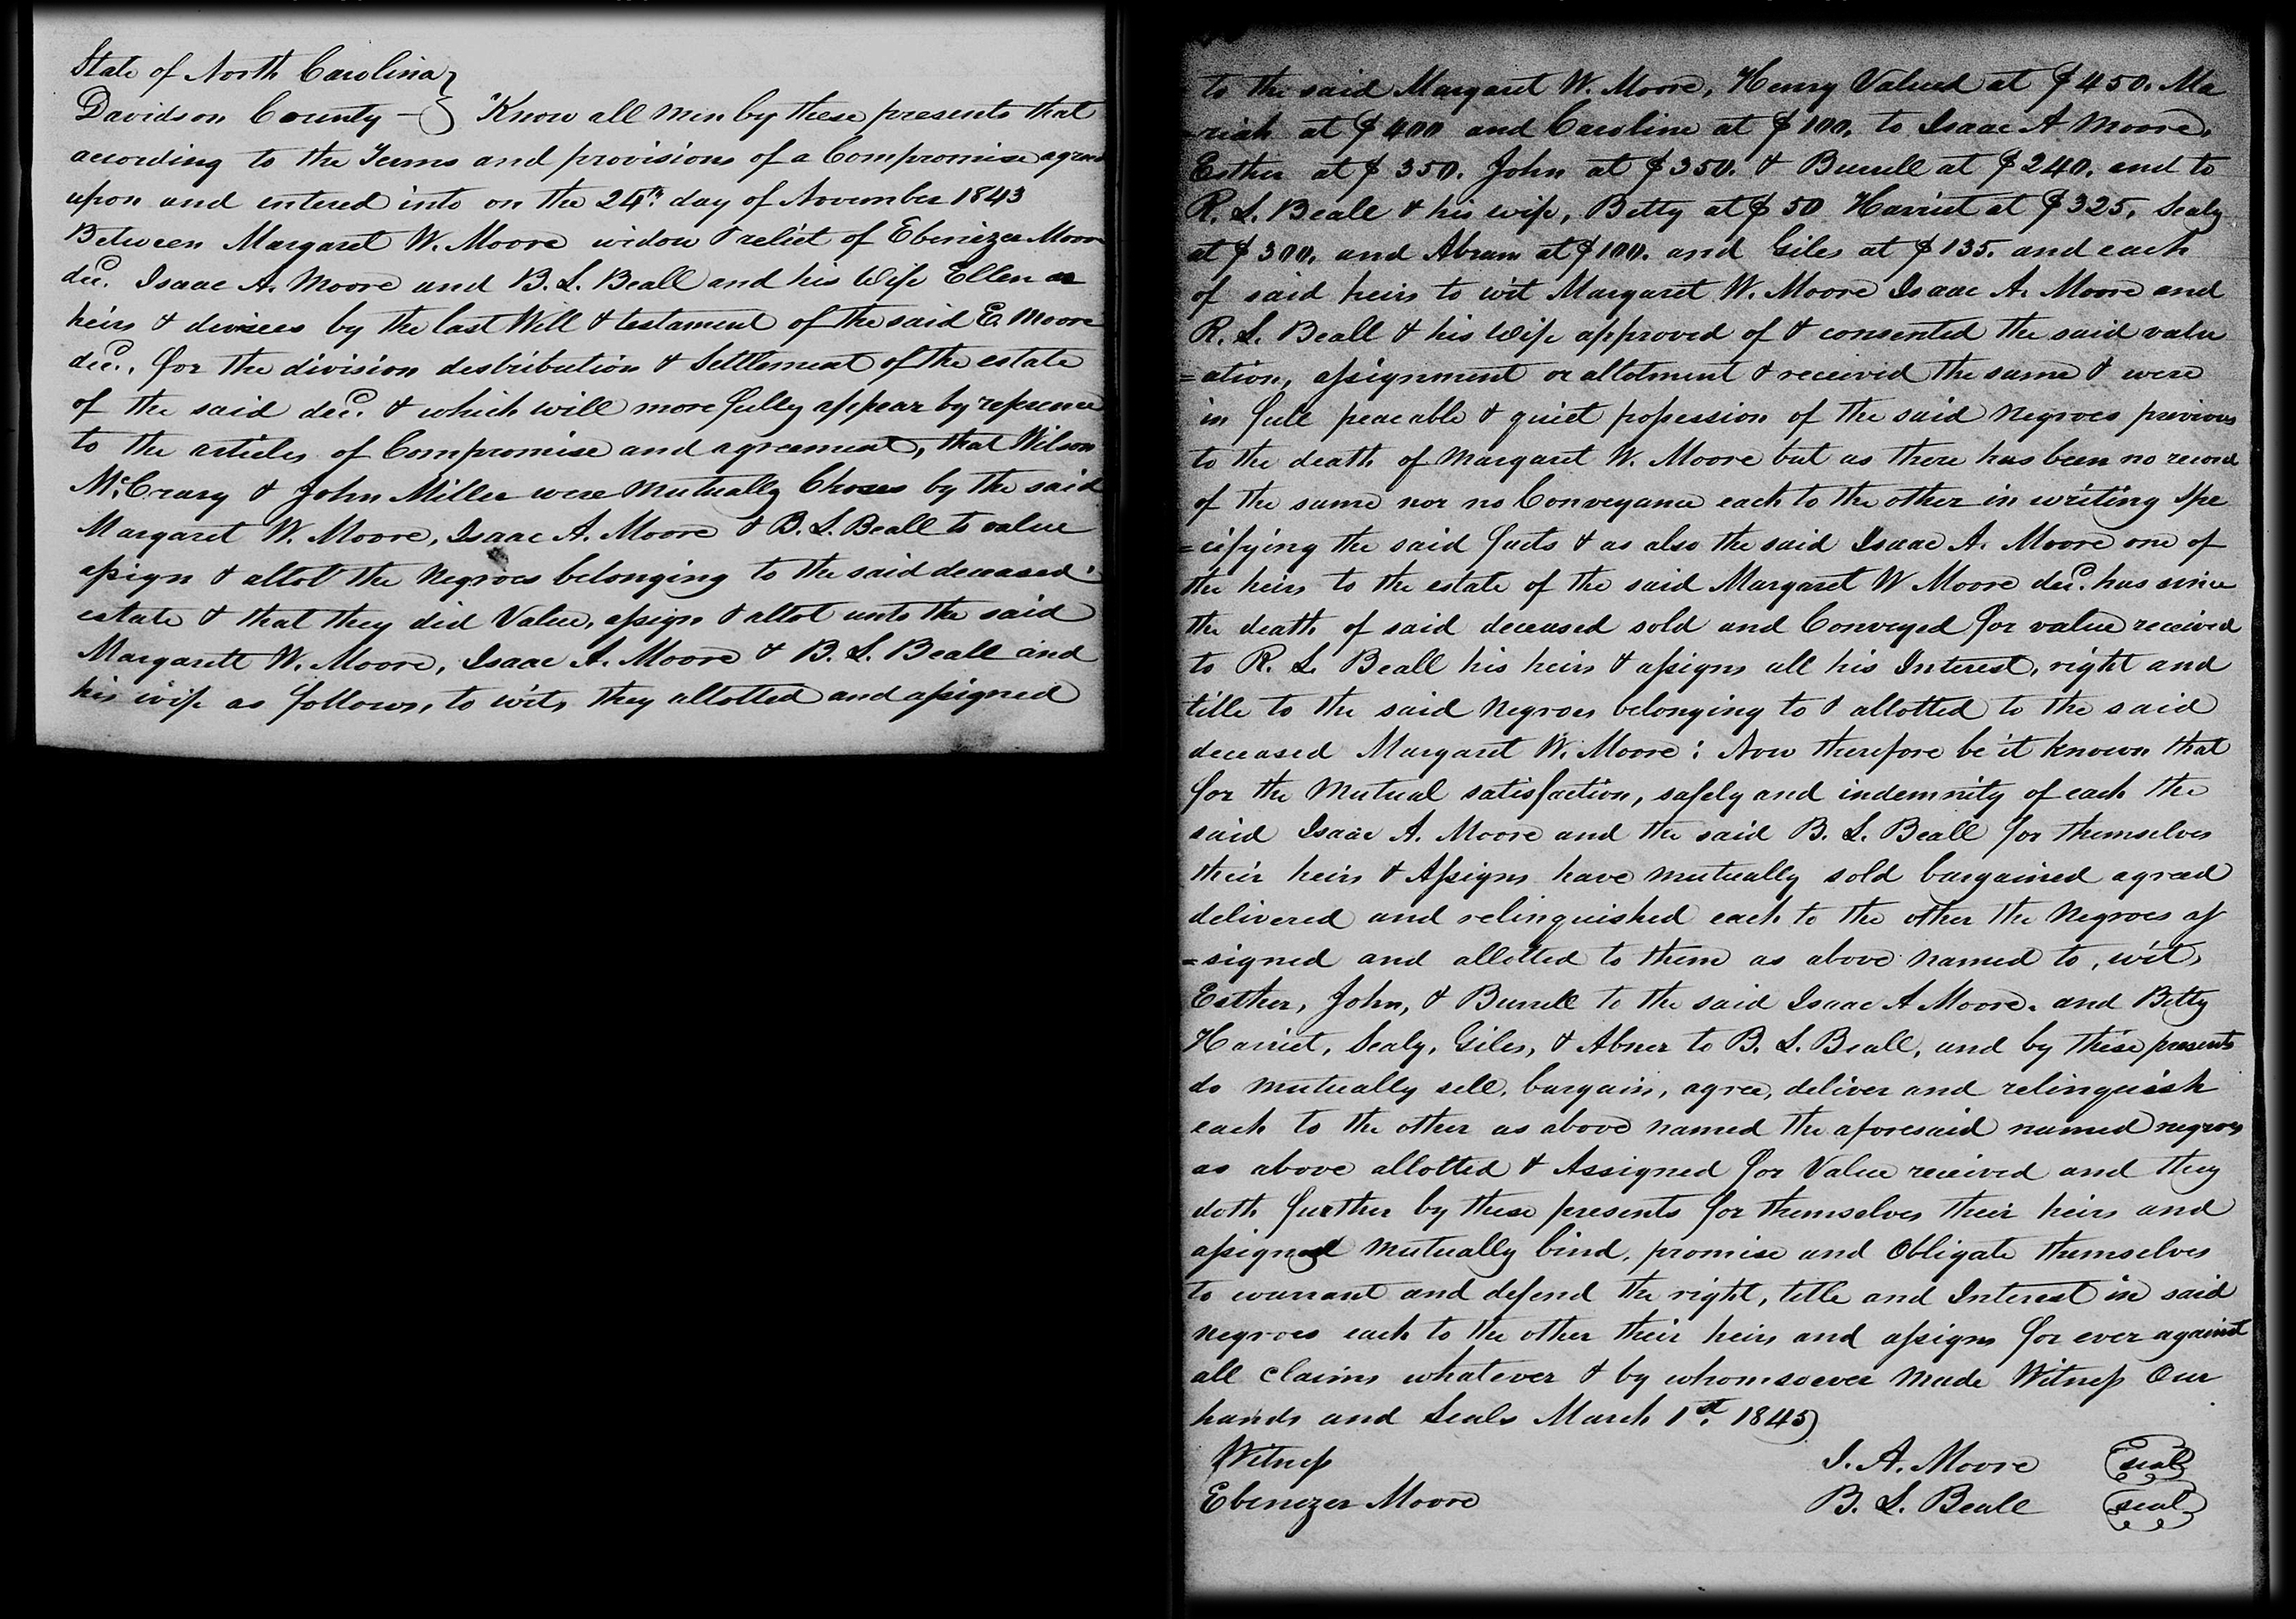 State of North Carolina }
Davidson County — } "Know all Men by these presents that
according to the Terms and provisions of a Compromise agreed
upon and entered into on the 24th. day of November 1843
Between Margaret W. Moore widow & relict of Ebenezer Moore
decd. Isaac A. Moore and B. L. Beall and his Wife Ellen as
heirs & devisees by the last Will & testament of the said E. Moore
decd., for the division destribution & Settlement of the estate
of the said decd. & which will more fully appear by refrence
to the articles of Compromise and agreement, that Wilson
McCrary & John Miller were mutually Chosen by the said
Margaret W. Moore, Isaac A. Moore & B. L. Beall to value
assign & allot the Negroes belonging to the said deceased'
estate & that they did Value, assign & allot unto the said
Margarett W. Moore, Isaac A. Moore & B. L. Beall and
his wife as follows, to wit, they allotted and assigned
to the said Margaret W. Moore, Henry Valued at $450. Ma
=riah at $400 and Caroline at $100, to Isaac A Moore,
Esther at $350. John at $350. & Burrell at $240, and to
R. L. Beall & his wife, Betty at $50 Harriet at $325, Sealy
at $300, and Abram at $100. and Giles at $135. and each
of said heirs to wit Margaret W. Moore Isaac A. Moore and
R. L. Beall & his Wife approved of & consented the said valu
=ation, assignment or allotment & received the same & were
in full peacable & quiet possession of the said Negroes previous
to the death of Margaret W. Moore but as there has been no record
of the same nor no Conveyance each to the other in writing Spe
=cifying the said facts & as also the said Isaac A. Moore one of
the heirs to the estate of the said Margaret W Moore decd. has since
the death of said deceased sold and Conveyed for value received
to R. L. Beall his heirs & assigns all his Interest, right and
title to the said Negroes belonging to & allotted to the said
deceased Margaret W. Moore: Now therefore be it known that
for the Mutual satisfaction, safely and indemnity of each the
said Isaac A. Moore and the said B. L. Beall for themselves
their heirs & Assigns have mutually sold bargained agreed
delivered and relinquished each to the other the Negroes as
=signed and allotted to them as above named to, wit,
Esther, John, & Burrell to the said Isaac A Moore. and Betty
Harriet, Sealy, Giles, & Abner to B. L. Beall, and by these presents
do mutually sell, bargain, agree, deliver and relinquish
each to the other as above named the aforesaid named negroes
as above allotted & Assigned for Value received and they
doth further by these presents for themselves their heirs and
assigns mutually bind, promise and Obligate themselves
to warrant and defend the right, title and Interest in said
negroes each to the other their heirs and assigns for ever against
all claims whatever & by whomsoever made Witness Our
hands and Seals March 1st. 1845
Witness I. A. Moore (seal)
Ebenezer Moore B. L. Beall (seal)